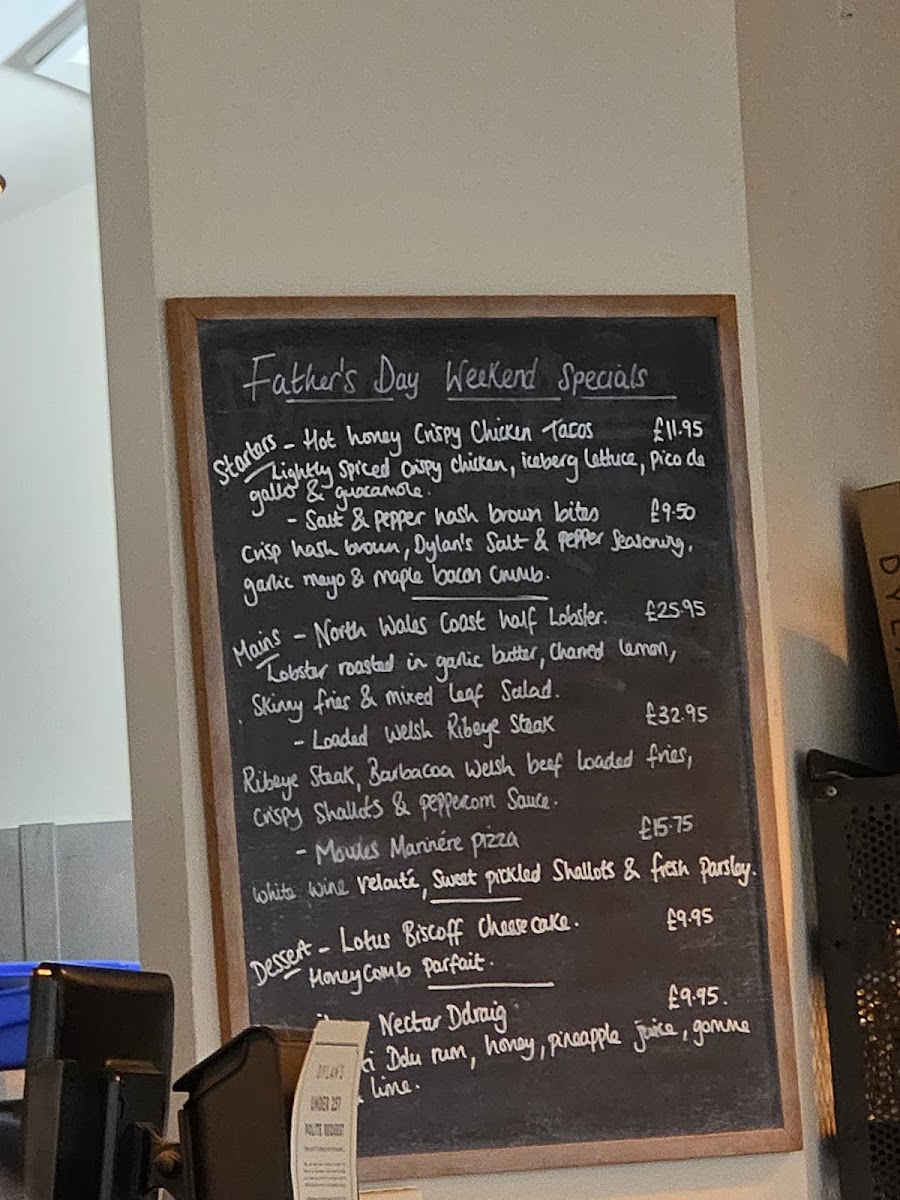 Father's Day Weekend Specials
Starters - Hot honey Crispy Chicken Tacos £11.95
Lightly spiced crispy chicken, iceberg lettuce, pico de
gallo & guacamole.
- Salt & pepper hash brown bites £9.50
Crisp hash brown, Dylan's Salt & pepper Seasoning,
garlic mayo & maple bacon crumb.
Mains - North Wales Coast half Lobster. £25.95
Lobster roasted in garlic butter, charred lemon,
Skinny fries & mixed leaf Salad.
- Loaded Welsh Ribeye Steak £32.95
Ribeye Steak, Barbacoa Welsh beef loaded fries,
Crispy Shallots & peppercorn Sauce.
- Moules Marinére pizza £15.75
White wine velouté, Sweet pickled Shallots & fresh parsley.
Dessert - Lotus Biscoff Cheesecake. £9.95
Honeycomb parfait.
Nectar Ddraig £9.95.
Ddu rum, honey, pineapple juice, gomme
lime.
DYLAN'S
UNDER 25?
POLITE REQUEST